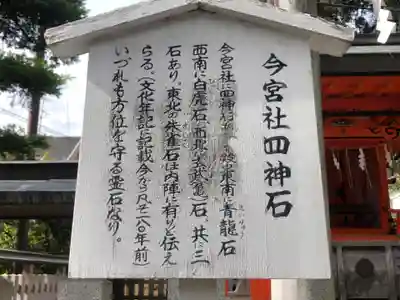 今宮社四神石
今宮社に四神石あり、殿の東南に青龍石
西南に白虎石、西北に玄武石、共に三
石あり、東北の朱雀石は内陣に有りと伝え
らる。(文化年記に記載今から凡そ二〇〇年前)
いづれも方位を守る霊石なり。